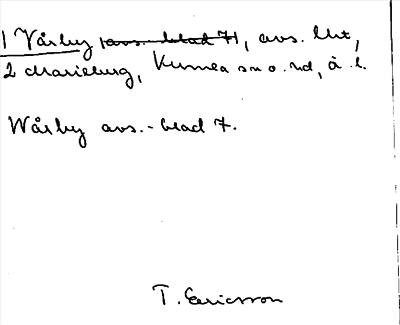 1 Vårby (avs. blad 7), avs. lht,
2 Marieberg, Kumla sn o. hd, ä. l.
Wårby avs.-blad 7.
T. Ericsson